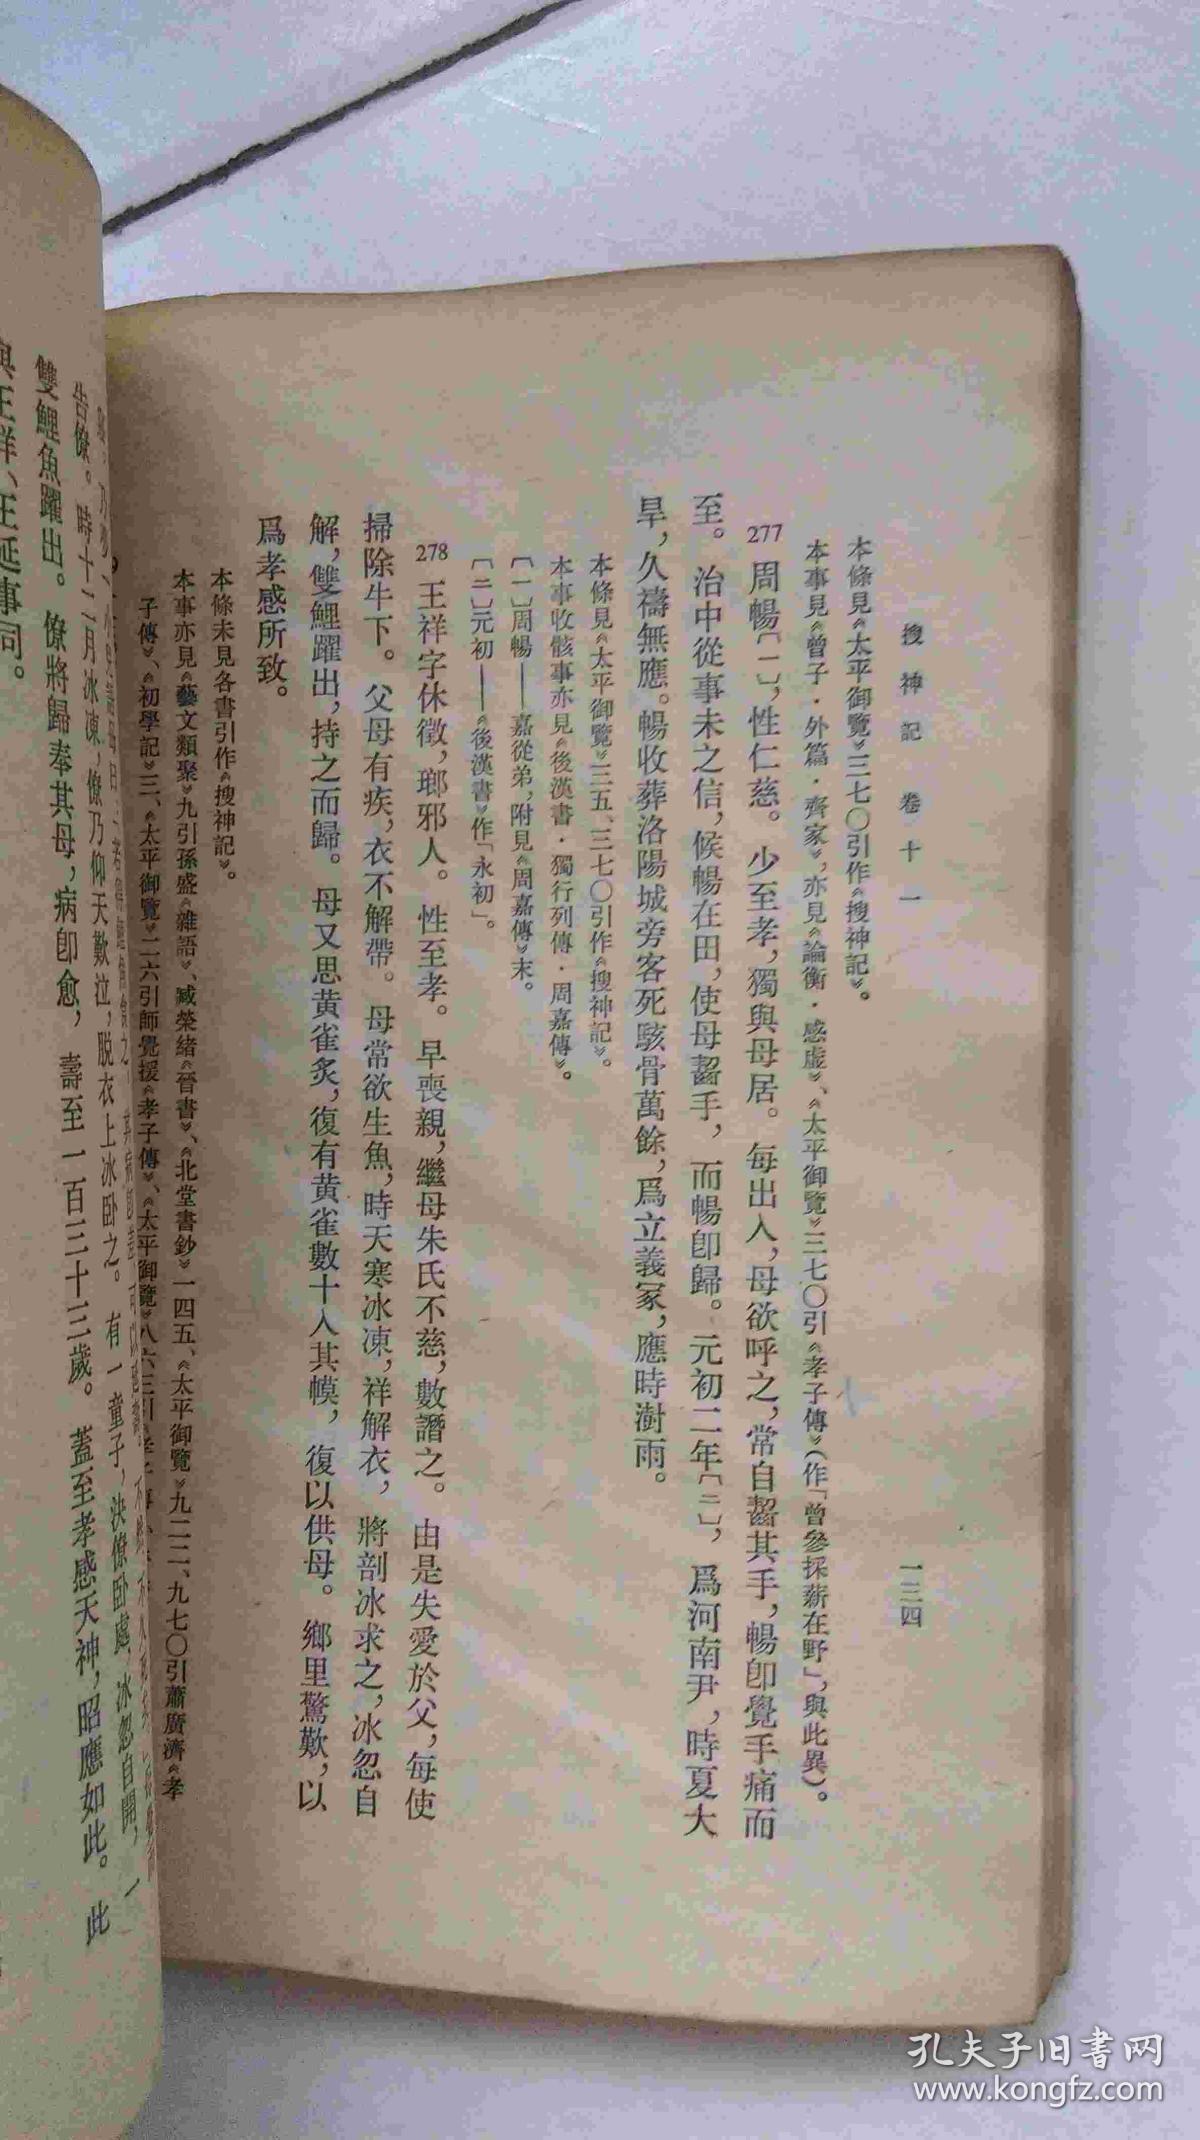 搜神記 卷十一
一三四
本條見《太平御覽》三七〇引作《搜神記》。
本事見《曾子·外篇·齊家》,亦見《論衡·感虛》、《太平御覽》三七〇引《孝子傳》(作「曾參採薪在野」,與此異)。
277 周暢〔一〕,性仁慈。少至孝,獨與母居。每出入,母欲呼之,常自齧其手,暢卽覺手痛而
至。治中從事未之信,候暢在田,使母齧手,而暢卽歸。元初二年〔二〕,爲河南尹,時夏大
旱,久禱無應。暢收葬洛陽城旁客死骸骨萬餘,爲立義冢,應時澍雨。
本條見《太平御覽》三五、三七〇引作《搜神記》。
本事收骸事亦見《後漢書·獨行列傳·周嘉傳》。
〔一〕周暢——嘉從弟,附見《周嘉傳》末。
〔二〕元初——《後漢書》作「永初」。
278 王祥字休徵,瑯邪人。性至孝。早喪親,繼母朱氏不慈,數譖之。由是失愛於父,每使
掃除牛下。父母有疾,衣不解帶。母常欲生魚,時天寒冰凍,祥解衣,將剖冰求之,冰忽自
解,雙鯉躍出,持之而歸。母又思黄雀炙,復有黄雀數十入其幙,復以供母。鄉里驚歎,以
爲孝感所致。
本條未見各書引作《搜神記》。
本事亦見《藝文類聚》九引孫盛《雜語》、臧榮緒《晉書》、《北堂書鈔》一四五、《太平御覽》九二二、九七〇引蕭廣濟《孝
子傳》、《初學記》三、《太平御覽》二六引師覺授《孝子傳》、《太平御覽》八六三引
告僚。時十二月冰凍,僚乃仰天歎泣,脱衣上冰卧之。有一童子,決僚卧處,冰忽自開,一
雙鯉魚躍出。僚將歸奉其母,病卽愈,壽至一百三十三歲。蓋至孝感天神,昭應如此。此
與王祥、王延事同。
孔夫子旧书网
www.kongfz.com